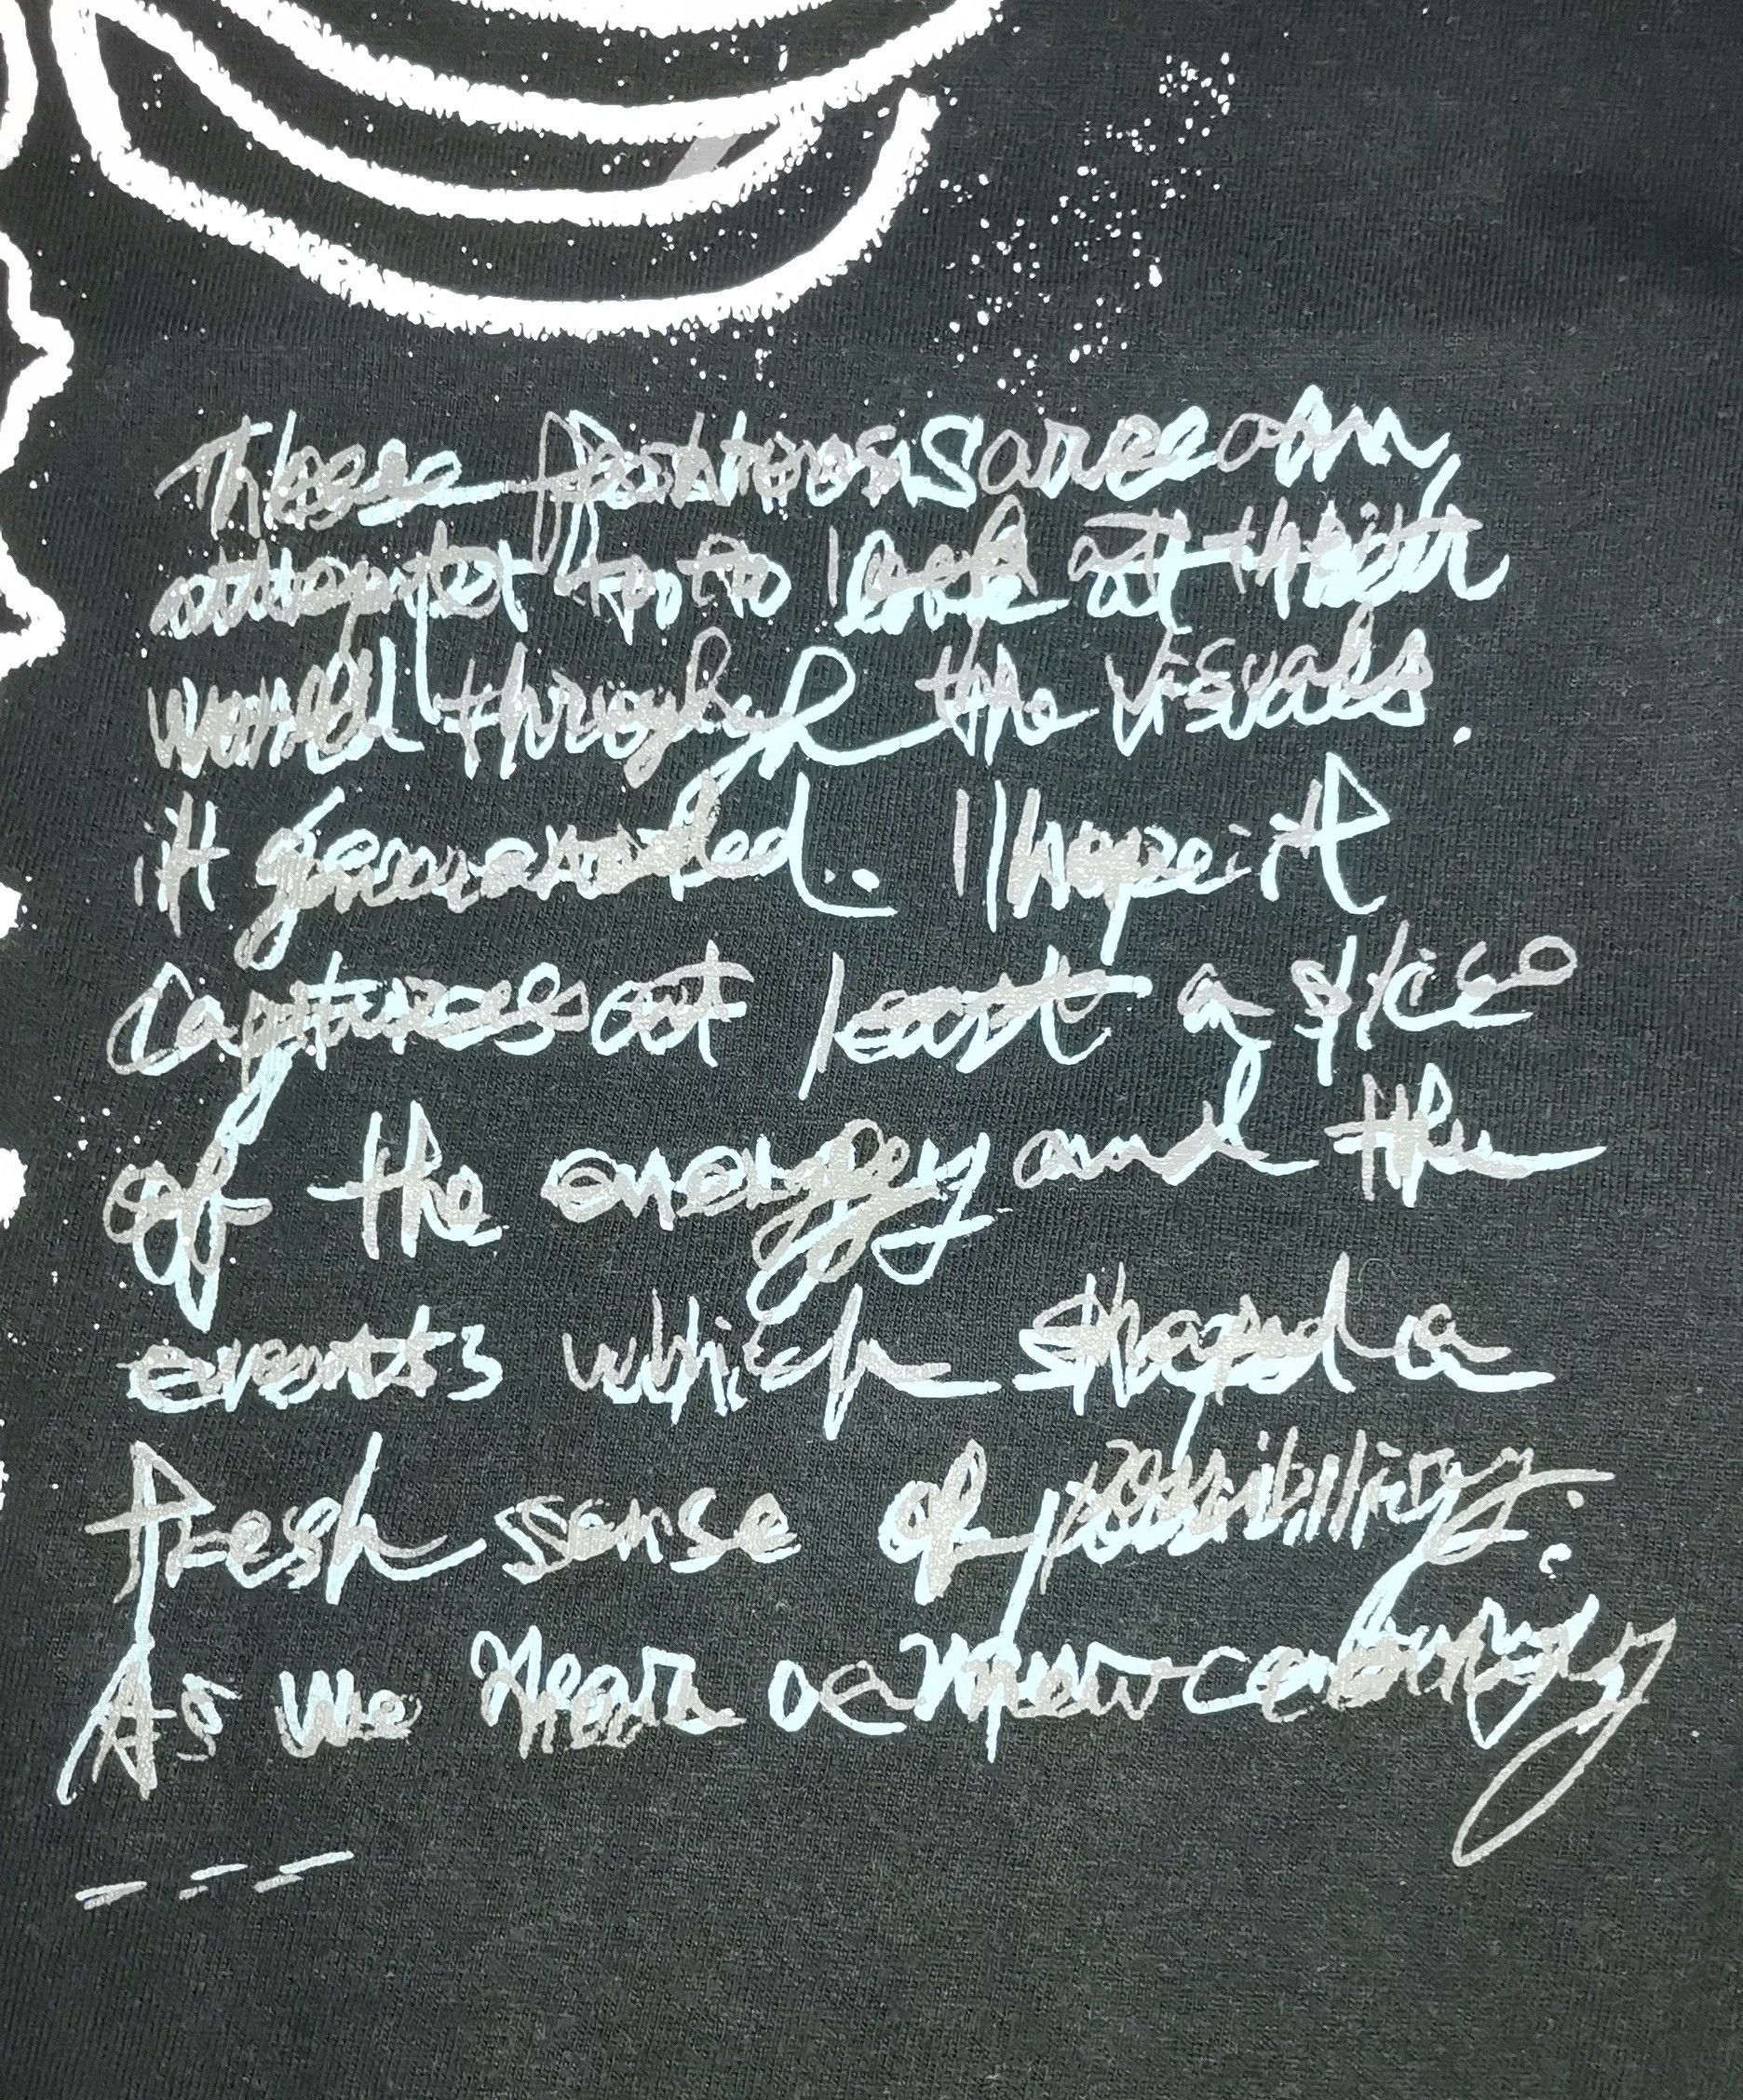 These fashions are an
attempt to look at their
world through the visuals.
it generated. I hope it
captures at least a slice
of the energy and the
events which shaped a
fresh sense of possibility.
As we near a new century
---